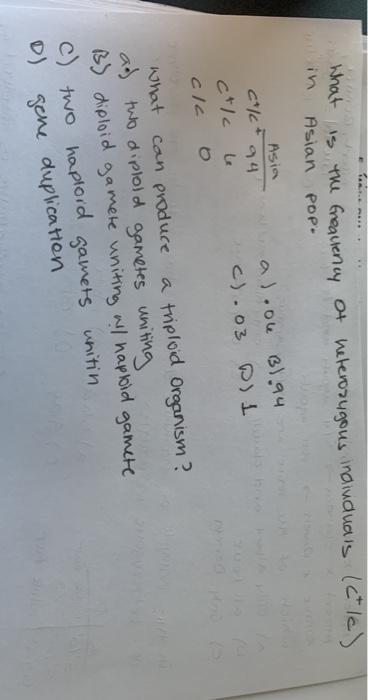 What is the frequency of heterozygous individuals (c⁺/c)
in Asian pop.
Asia
c⁺/c⁺ 94
c⁺/c 6
c/c 0
a) .06 B) .94
c) .03 D) 1
What can produce a triploid organism?
a.) two diploid gametes uniting
(B) diploid gamete uniting w/ haploid gamete
C) two haploid gamets unitin
D) gene duplication